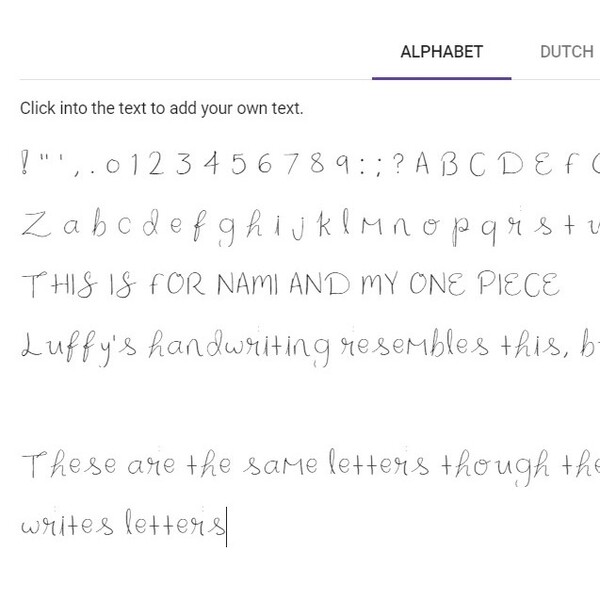 ALPHABET DUTCH
Click into the text to add your own text.
! " ' , . 0 1 2 3 4 5 6 7 8 9 : ; ? A B C D E F
Z a b c d e f g h i j k l m n o p q r s t u
THIS IS FOR NAMI AND MY ONE PIECE
Luffy's handwriting resembles this, b
These are the same letters though the
writes letters